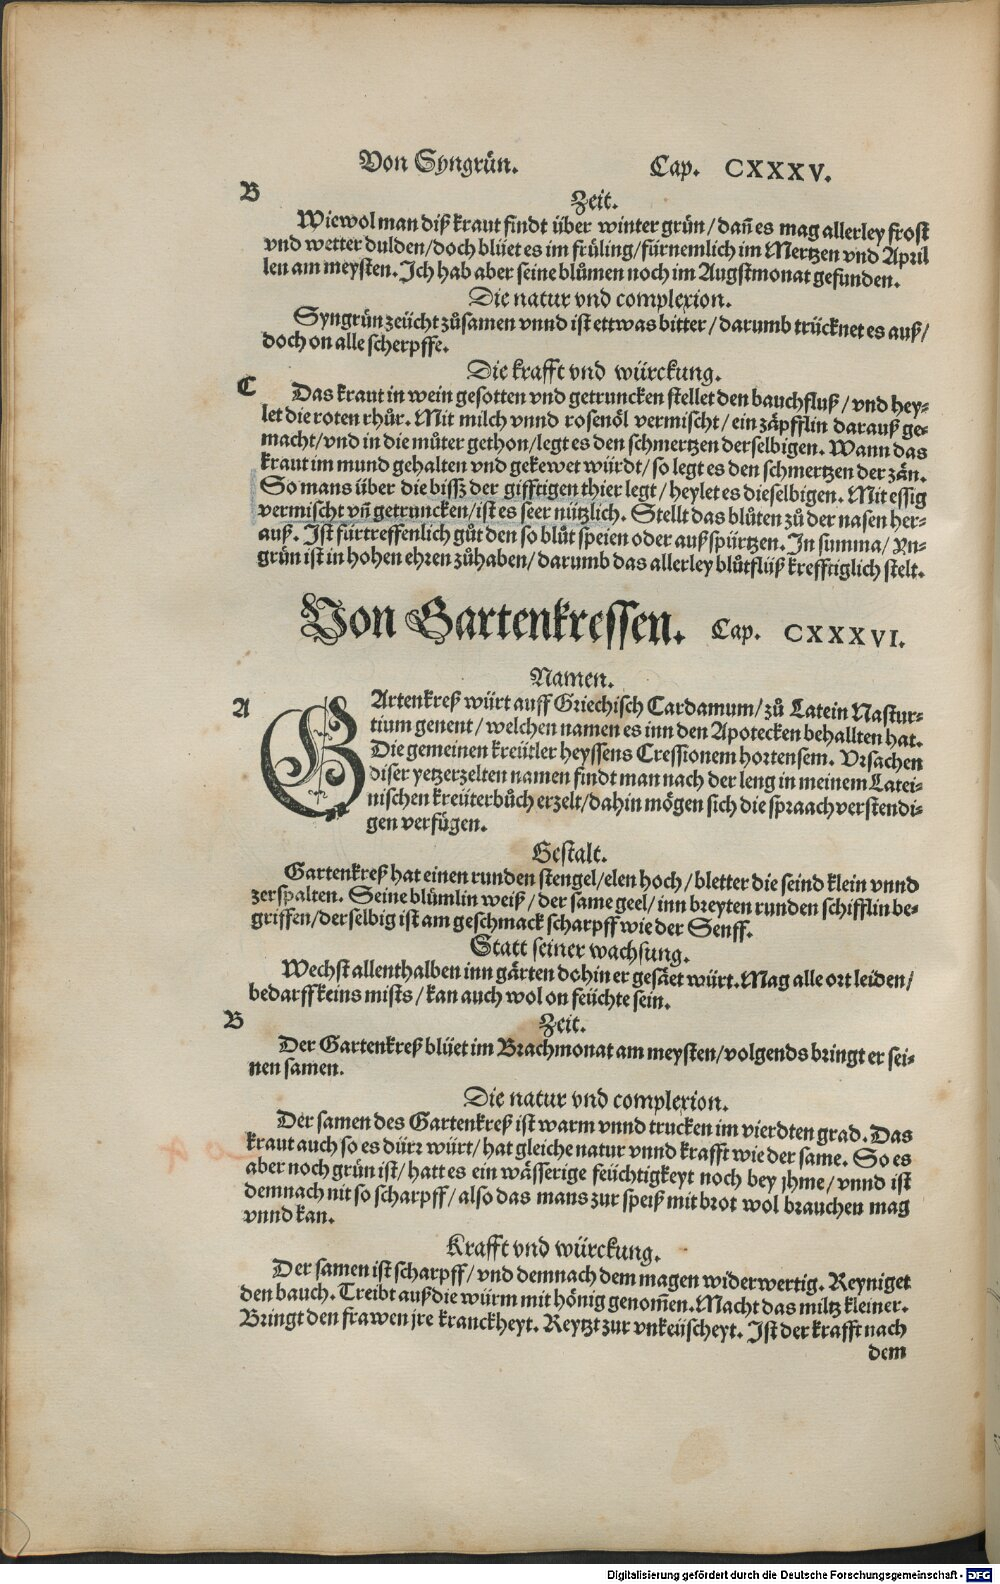 Von Syngrün. Cap. CXXXV.
B
Zeit.
Wiewol man diß kraut findt über winter grün/dañ es mag allerley frost
vnd wetter dulden/doch blüet es im früling/fürnemlich im Mertzen vnd April
len am meysten. Ich hab aber seine blůmen noch im Augstmonat gefunden.
Die natur vnd complexion.
Syngrün zeücht zůsamen vnnd ist ettwas bitter/darumb trücknet es auß/
doch on alle scherpffe.
Die krafft vnd würckung.
C
Das kraut in wein gesotten vnd getruncken stellet den bauchfluß/vnd hey-
let die roten rhůr. Mit milch vnnd rosenöl vermischt/ein zäpfflin darauß ge-
macht/vnd in die můter gethon/legt es den schmertzen derselbigen. Wann das
kraut im mund gehalten vnd gekewet würdt/so legt es den schmertzen der zän.
So mans über die bissz der gifftigen thier legt/heylet es dieselbigen. Mit essig
vermischt vñ getruncken/ist es seer nützlich. Stellt das blůten zů der nasen her-
auß. Ist fürtreffenlich gůt den so blůt speien oder außspürtzen. In summa/Yn-
grün ist in hohen ehren zůhaben/darumb das allerley blůtflüß krefftiglich stelt.
Von Gartenkressen. Cap. CXXXVI.
Namen.
A
GArtenkreß würt auff Griechisch Cardamum/zů Latein Nastur-
tium genent/welchen namen es inn den Apotecken behallten hat.
Die gemeinen kreütler heyssens Cressionem hortensem. Vrsachen
diser yetzerzelten namen findt man nach der leng in meinem Latei-
nischen kreüterbůch erzelt/dahin mögen sich die spraach verstendi-
gen verfügen.
Gestalt.
Gartenkreß hat einen runden stengel/elen hoch/bletter die seind klein vnnd
zerspalten. Seine blümlin weiß/der same geel/inn breyten runden schifflin be-
griffen/derselbig ist am geschmack scharpff wie der Senff.
Statt seiner wachsung.
Wechst allenthalben inn gärten do hin er gesäet würt. Mag alle ort leiden/
bedarff keins mists/kan auch wol on feüchte sein.
B
Zeit.
Der Gartenkreß blüet im Brachmonat am meysten/volgends bringt er sei-
nen samen.
Die natur vnd complexion.
Der samen des Gartenkreß ist warm vnnd trucken im vierdten grad. Das
kraut auch so es dürr würt/hat gleiche natur vnnd krafft wie der same. So es
aber noch grün ist/hatt es ein wässerige feüchtigkeyt noch bey jhme/vnnd ist
demnach nit so scharpff/also das mans zur speiß mit brot wol brauchen mag
vnnd kan.
Krafft vnd würckung.
Der samen ist scharpff/vnd demnach dem magen widerwertig. Reyniget
den bauch. Treibt auß die würm mit hönig genom̃en. Macht das miltz kleiner.
Bringt den frawen jre kranckheyt. Reytzt zur vnkeüscheyt. Ist der krafft nach
dem
Digitalisierung gefördert durch die Deutsche Forschungsgemeinschaft - DFG